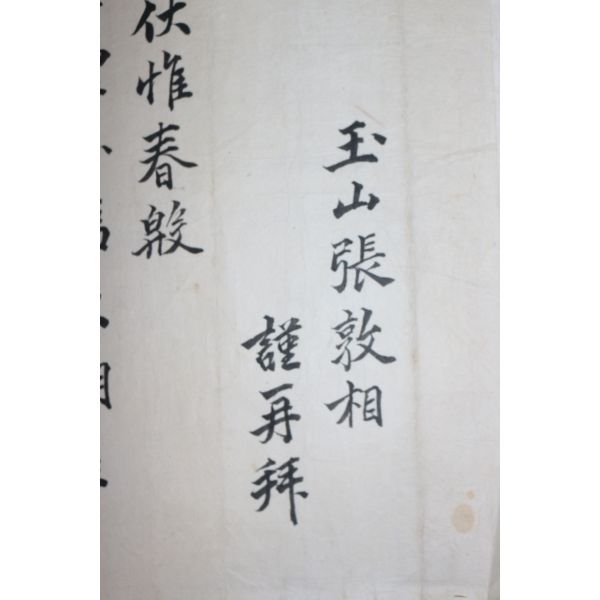 玉山張敦相
謹再拜
伏惟春殷